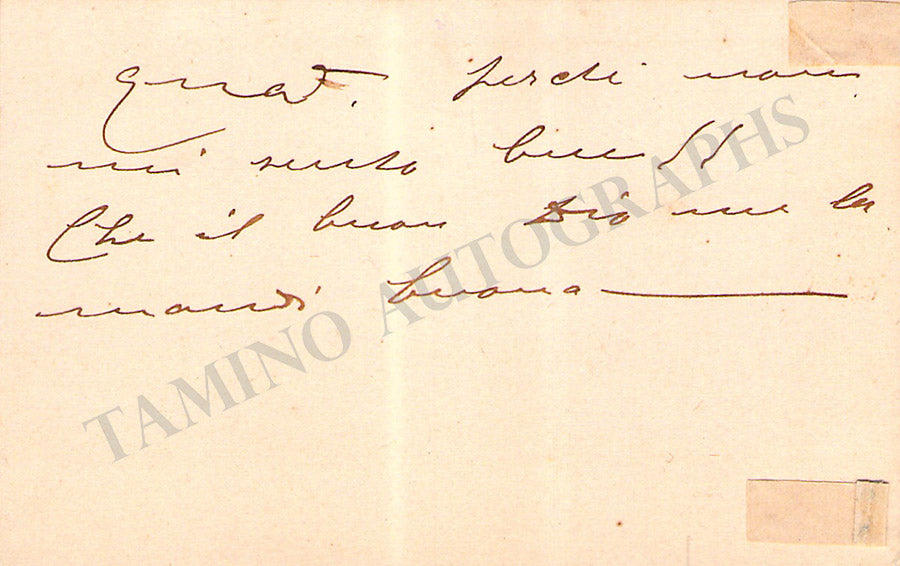 perchè non
mi sento bene
Che il buon Dio me la
mandi buona
TAMINO AUTOGRAPHS